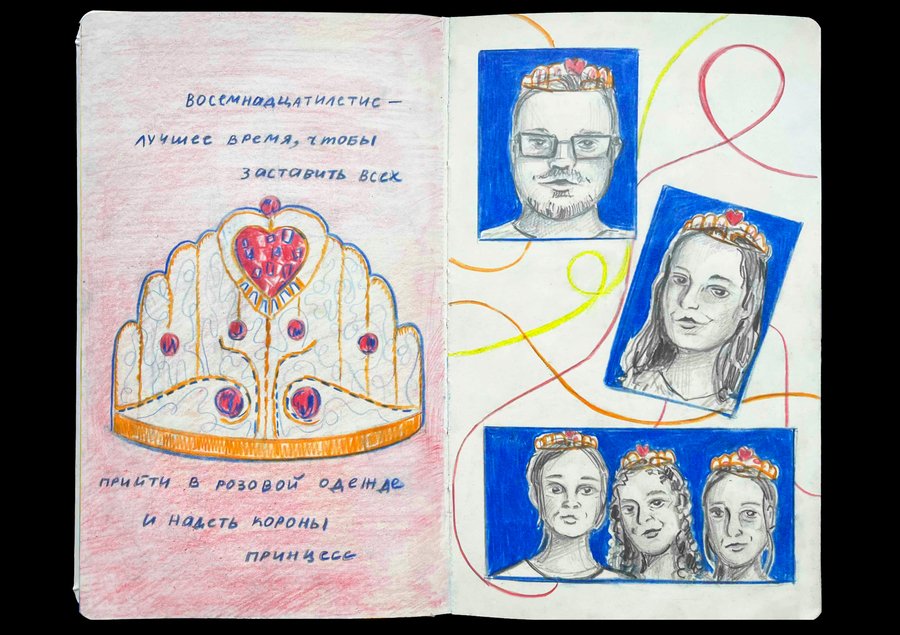 восемнадцатилетие –
лучшее время, чтобы
заставить всех
прийти в розовой одежде
и надеть короны
принцесс